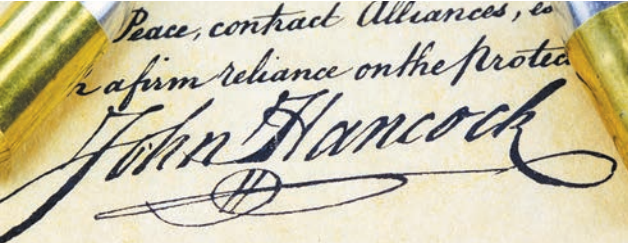 Peace, contract Alliances, es
h a firm reliance on the Protec
John Hancock